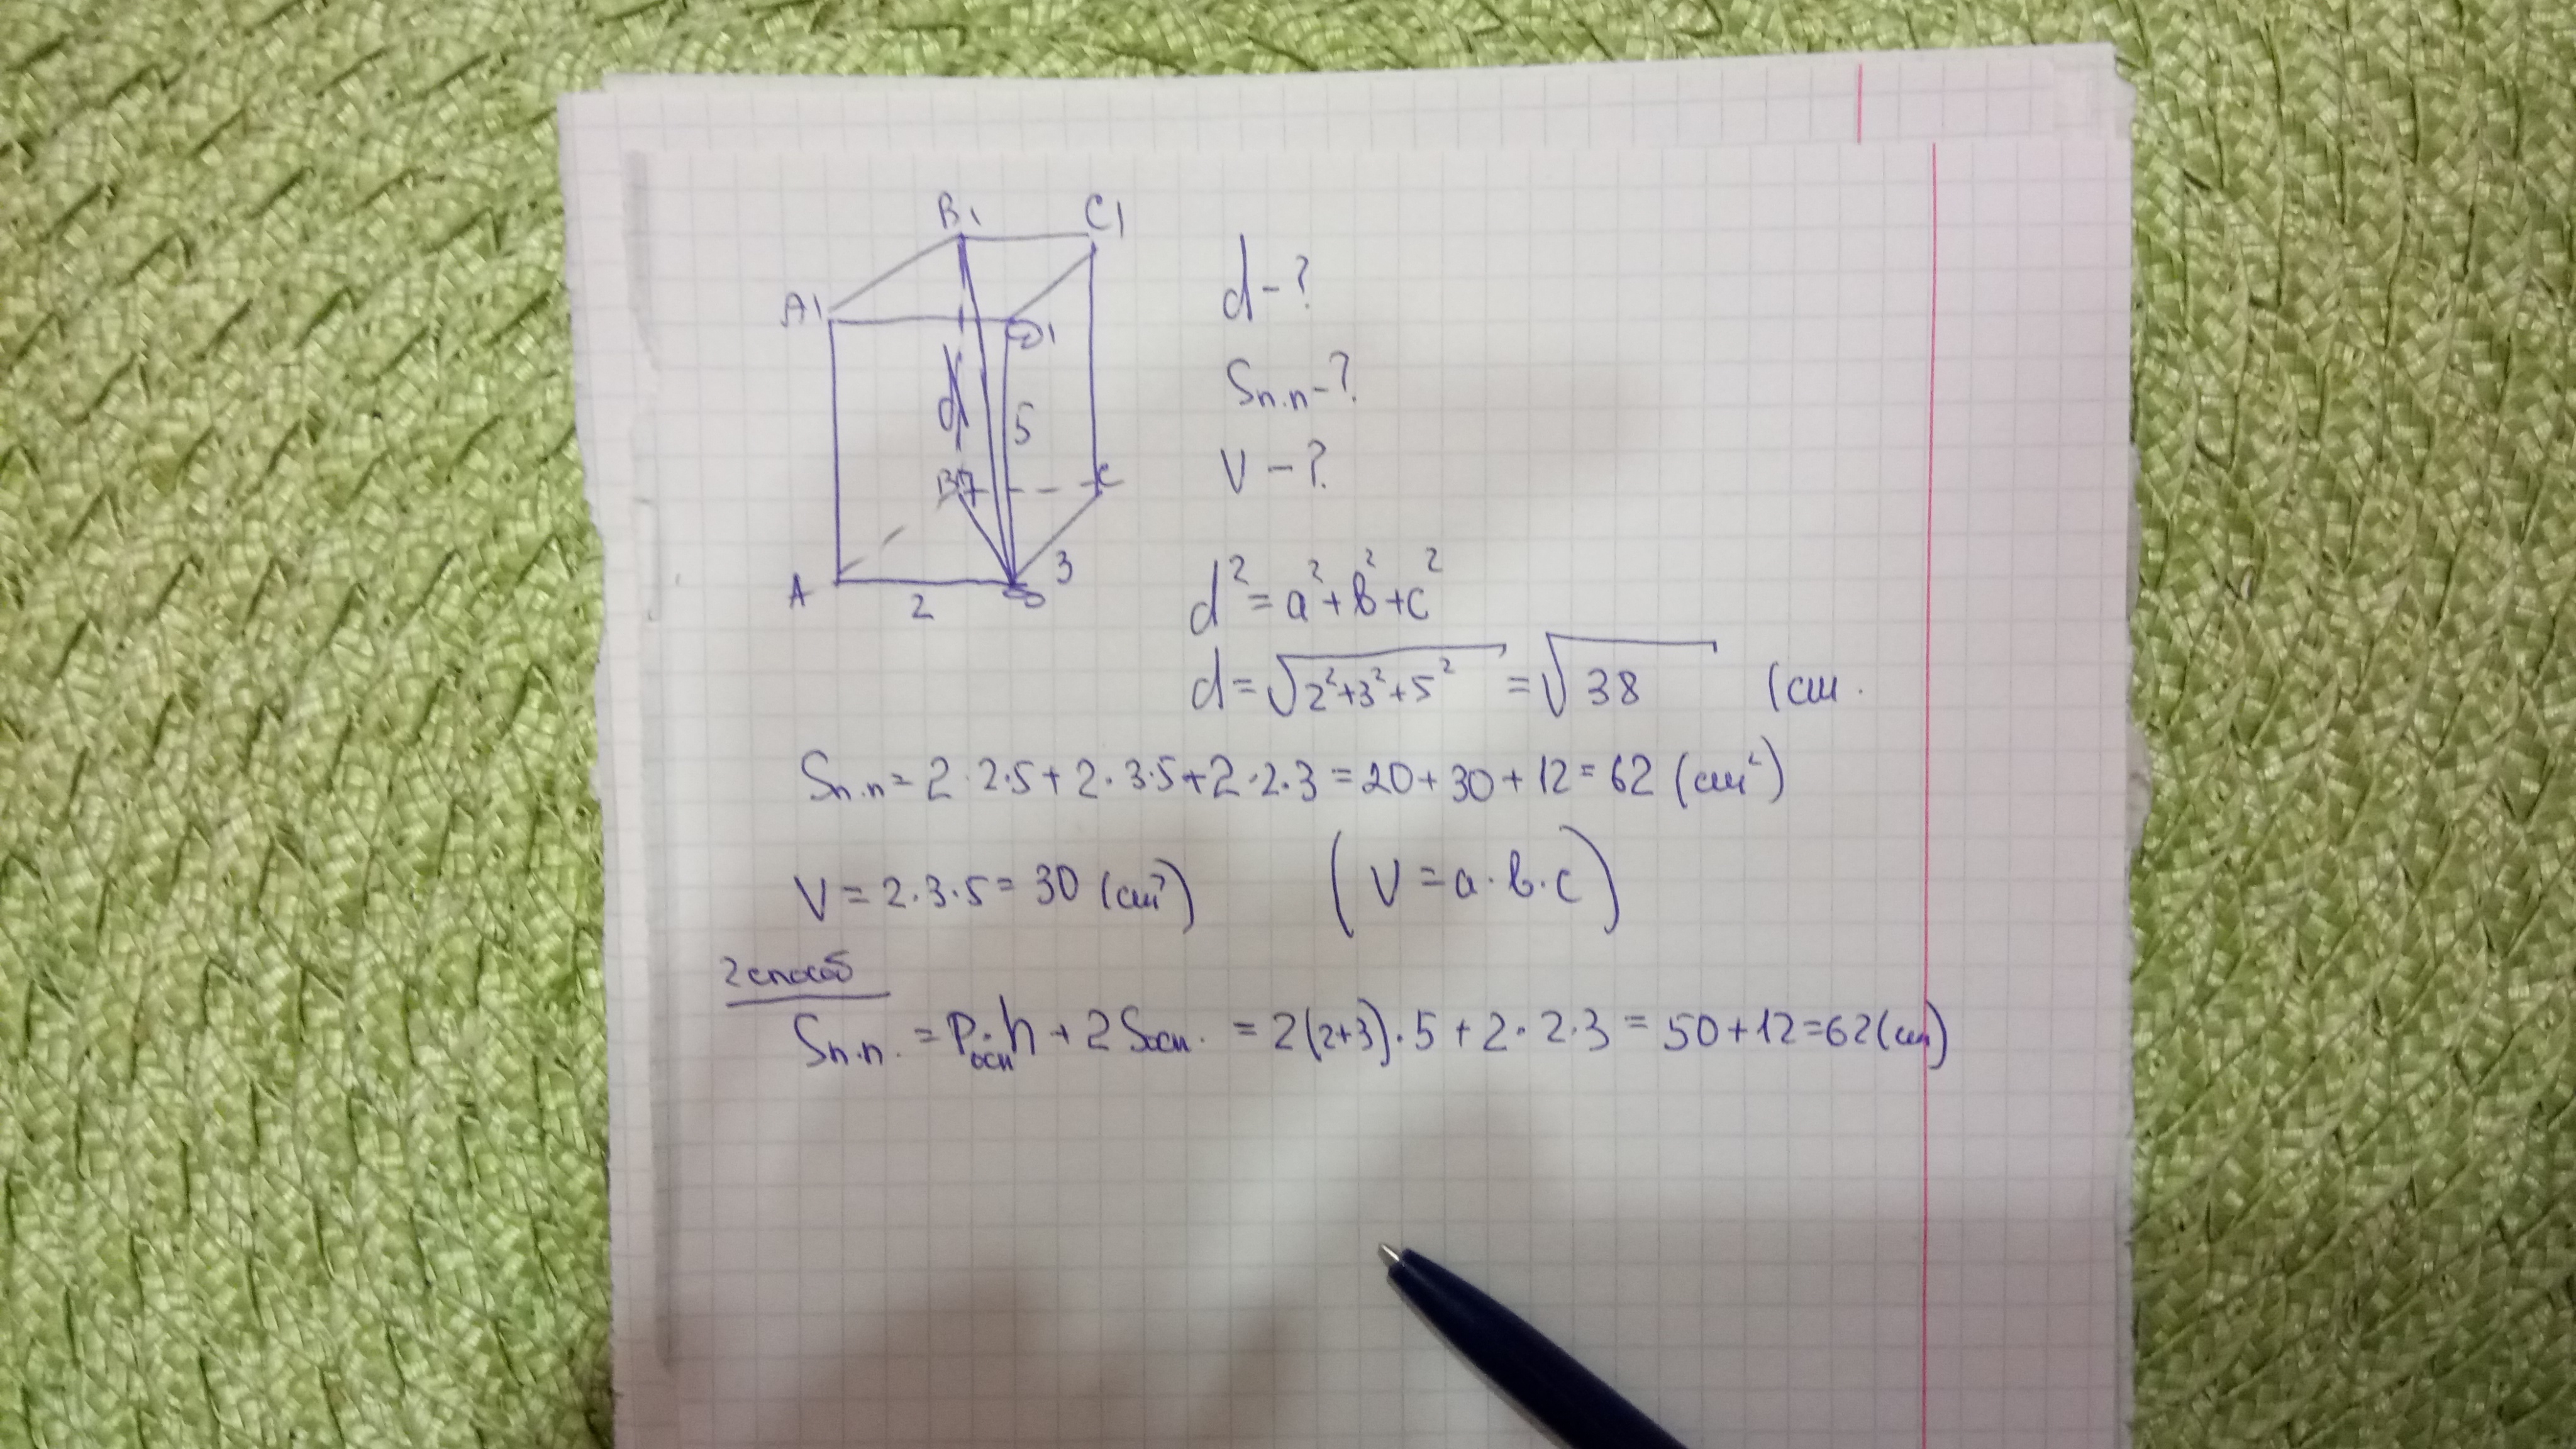 B1 C1
A1 D1
d 5
B C
A 2 D 3
d - ?
Sп.п - ?
V - ?
d² = a² + b² + c²
d = √2²+3²+5² = √38 (см.
Sп.п = 2·2·5 + 2·3·5 + 2·2·3 = 20 + 30 + 12 = 62 (см²)
V = 2·3·5 = 30 (см³) (V = a·b·c)
2 способ
Sп.п. = Pосн·h + 2Sосн. = 2(2+3)·5 + 2·2·3 = 50 + 12 = 62 (см)